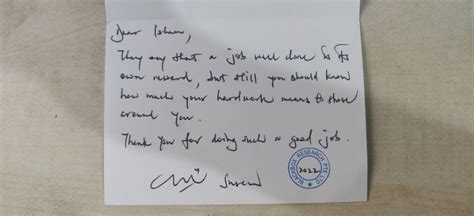 Dear Ishan,
They say that a job well done is its
own reward, but still you should know
how much your hardwork means to those
around you.
Thank you for doing such a good job.
BLACKBOX RESEARCH PTE LTD
2022